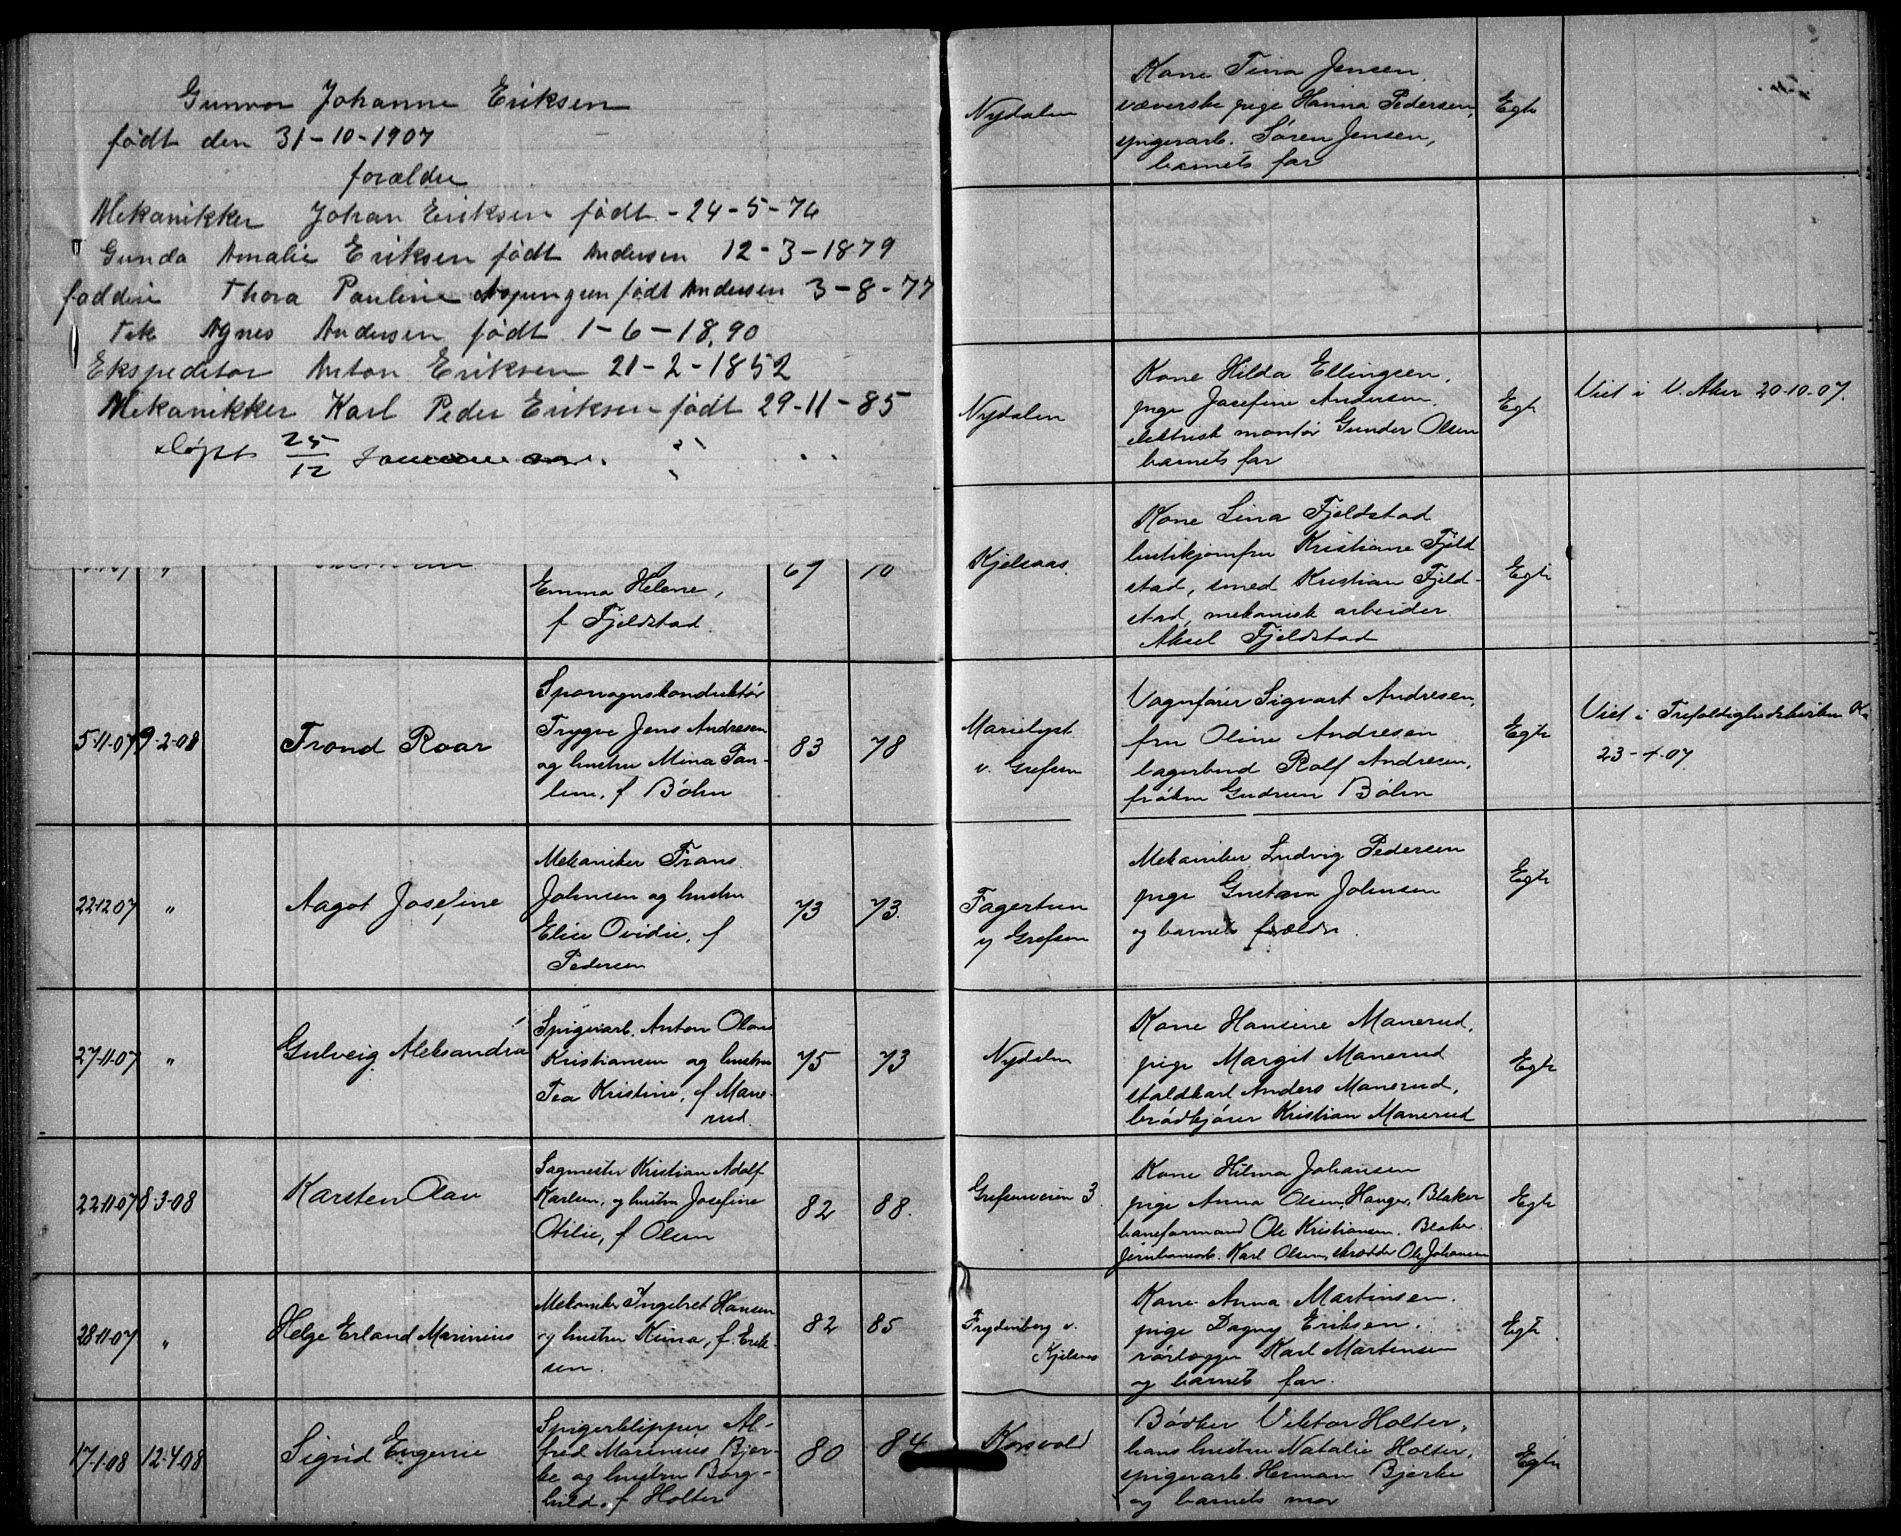 Gunvor Johanne Eriksen
født den 31-10-1907
forældre
Mekanikker Johan Eriksen født - 24-5-76
" Gunda Amalie Eriksen født Andersen 12-3-1879
faddere Thora Pauline født Andersen 3-8-77
Frk Agnes Andersen født 1-6-1890
Ekspeditør Anton Eriksen 21-2-1852
Mekanikker Karl Peder Eriksen født 29-11-85
døpt 25/12
Emma Helene,
f Fjeldstad.
67 10
Nydalen
Kone Tina Jensen,
væverske pige Hanna Pedersen,
spigerarb. Søren Jensen,
barnets far
Egte
Nydalen
Kone Hilda Ellingsen,
pige Josefine Andersen.
elektrisk montør Gunder Olsen
barnets far
Egte
Viet i V. Aker 20-10-07.
Kjelsaas
Kone Lina Fjeldstad
butikjomfru Kristiane Fjeld
stad, smed Kristian Fjeld-
stad, mekanisk arbeider
Aksel Fjeldstad
Egte
5-11-07 9-2-08
Trond Roar
Sporvognskonduktør
Trygve Jens Andresen
og hustru Mina Pau-
line, f Bøhn
83 78
Marielyst
v. Grefsen
Vognfører Sigvart Andresen,
fru Oline Andresen
lagerbud Rolf Andresen,
frøken Gudrun Bøhn
Egte
Viet i Trefoldighedskirken K.
23-4-07
22-12-07 "
Aagot Josefine
Mekaniker Frans
Johnsen og hustru
Elise Ovidie, f
Pedersen
73 73.
Fagertun
v Grefsen
Mekaniker Ludvig Pedersen
pige Gustava Johnsen
og barnets forældre.
Egte
27-11-07 "
Gulveig Aleksandra
Spigerarb. Anton Olaus
Kristiansen og hustru
Tea Kristine, f Mane-
rud.
75 73
Nydalen
Kone Hansine Manerud,
pige Margit Manerud
staldkarl Anders Manerud,
brødkjører Kristian Manerud
Egte
22-11-07 8-3-08
Karsten Olav
Sagmester Kristian Adolf
Karlsen, og hustru Josefine
Otilie, f Olsen
82 88.
Grefsenveien 3.
Kone Hilma Johansen
pige Anna Olsen, Hauger, Blaker
baneformand Ole Kristiansen. Blaker.
Jernbanearb. Karl Olsen, skrædder Ole Johansen
Egte
28-11-07 "
Helge Erland Marinius
Mekaniker Ingebret Hansen
og hustru Kima, f. Erik-
sen.
82 85
Frydenberg v.
Kjelsaas
Kone Anna Martinsen.
pige Dagny Eriksen.
rørlægger Karl Martinsen
og barnets far.
Egte
17-1-08 12-4-08
Sigrid Eugenie
Spigerklipper Al-
fred Marinius Bjer-
ke og hustru Borg-
hild, f Holter
80 84
Korsvold
Bødker Viktor Holter,
hans hustru Natalie Holter,
spigerarb. Herman Bjerke
og barnets mor
Egte